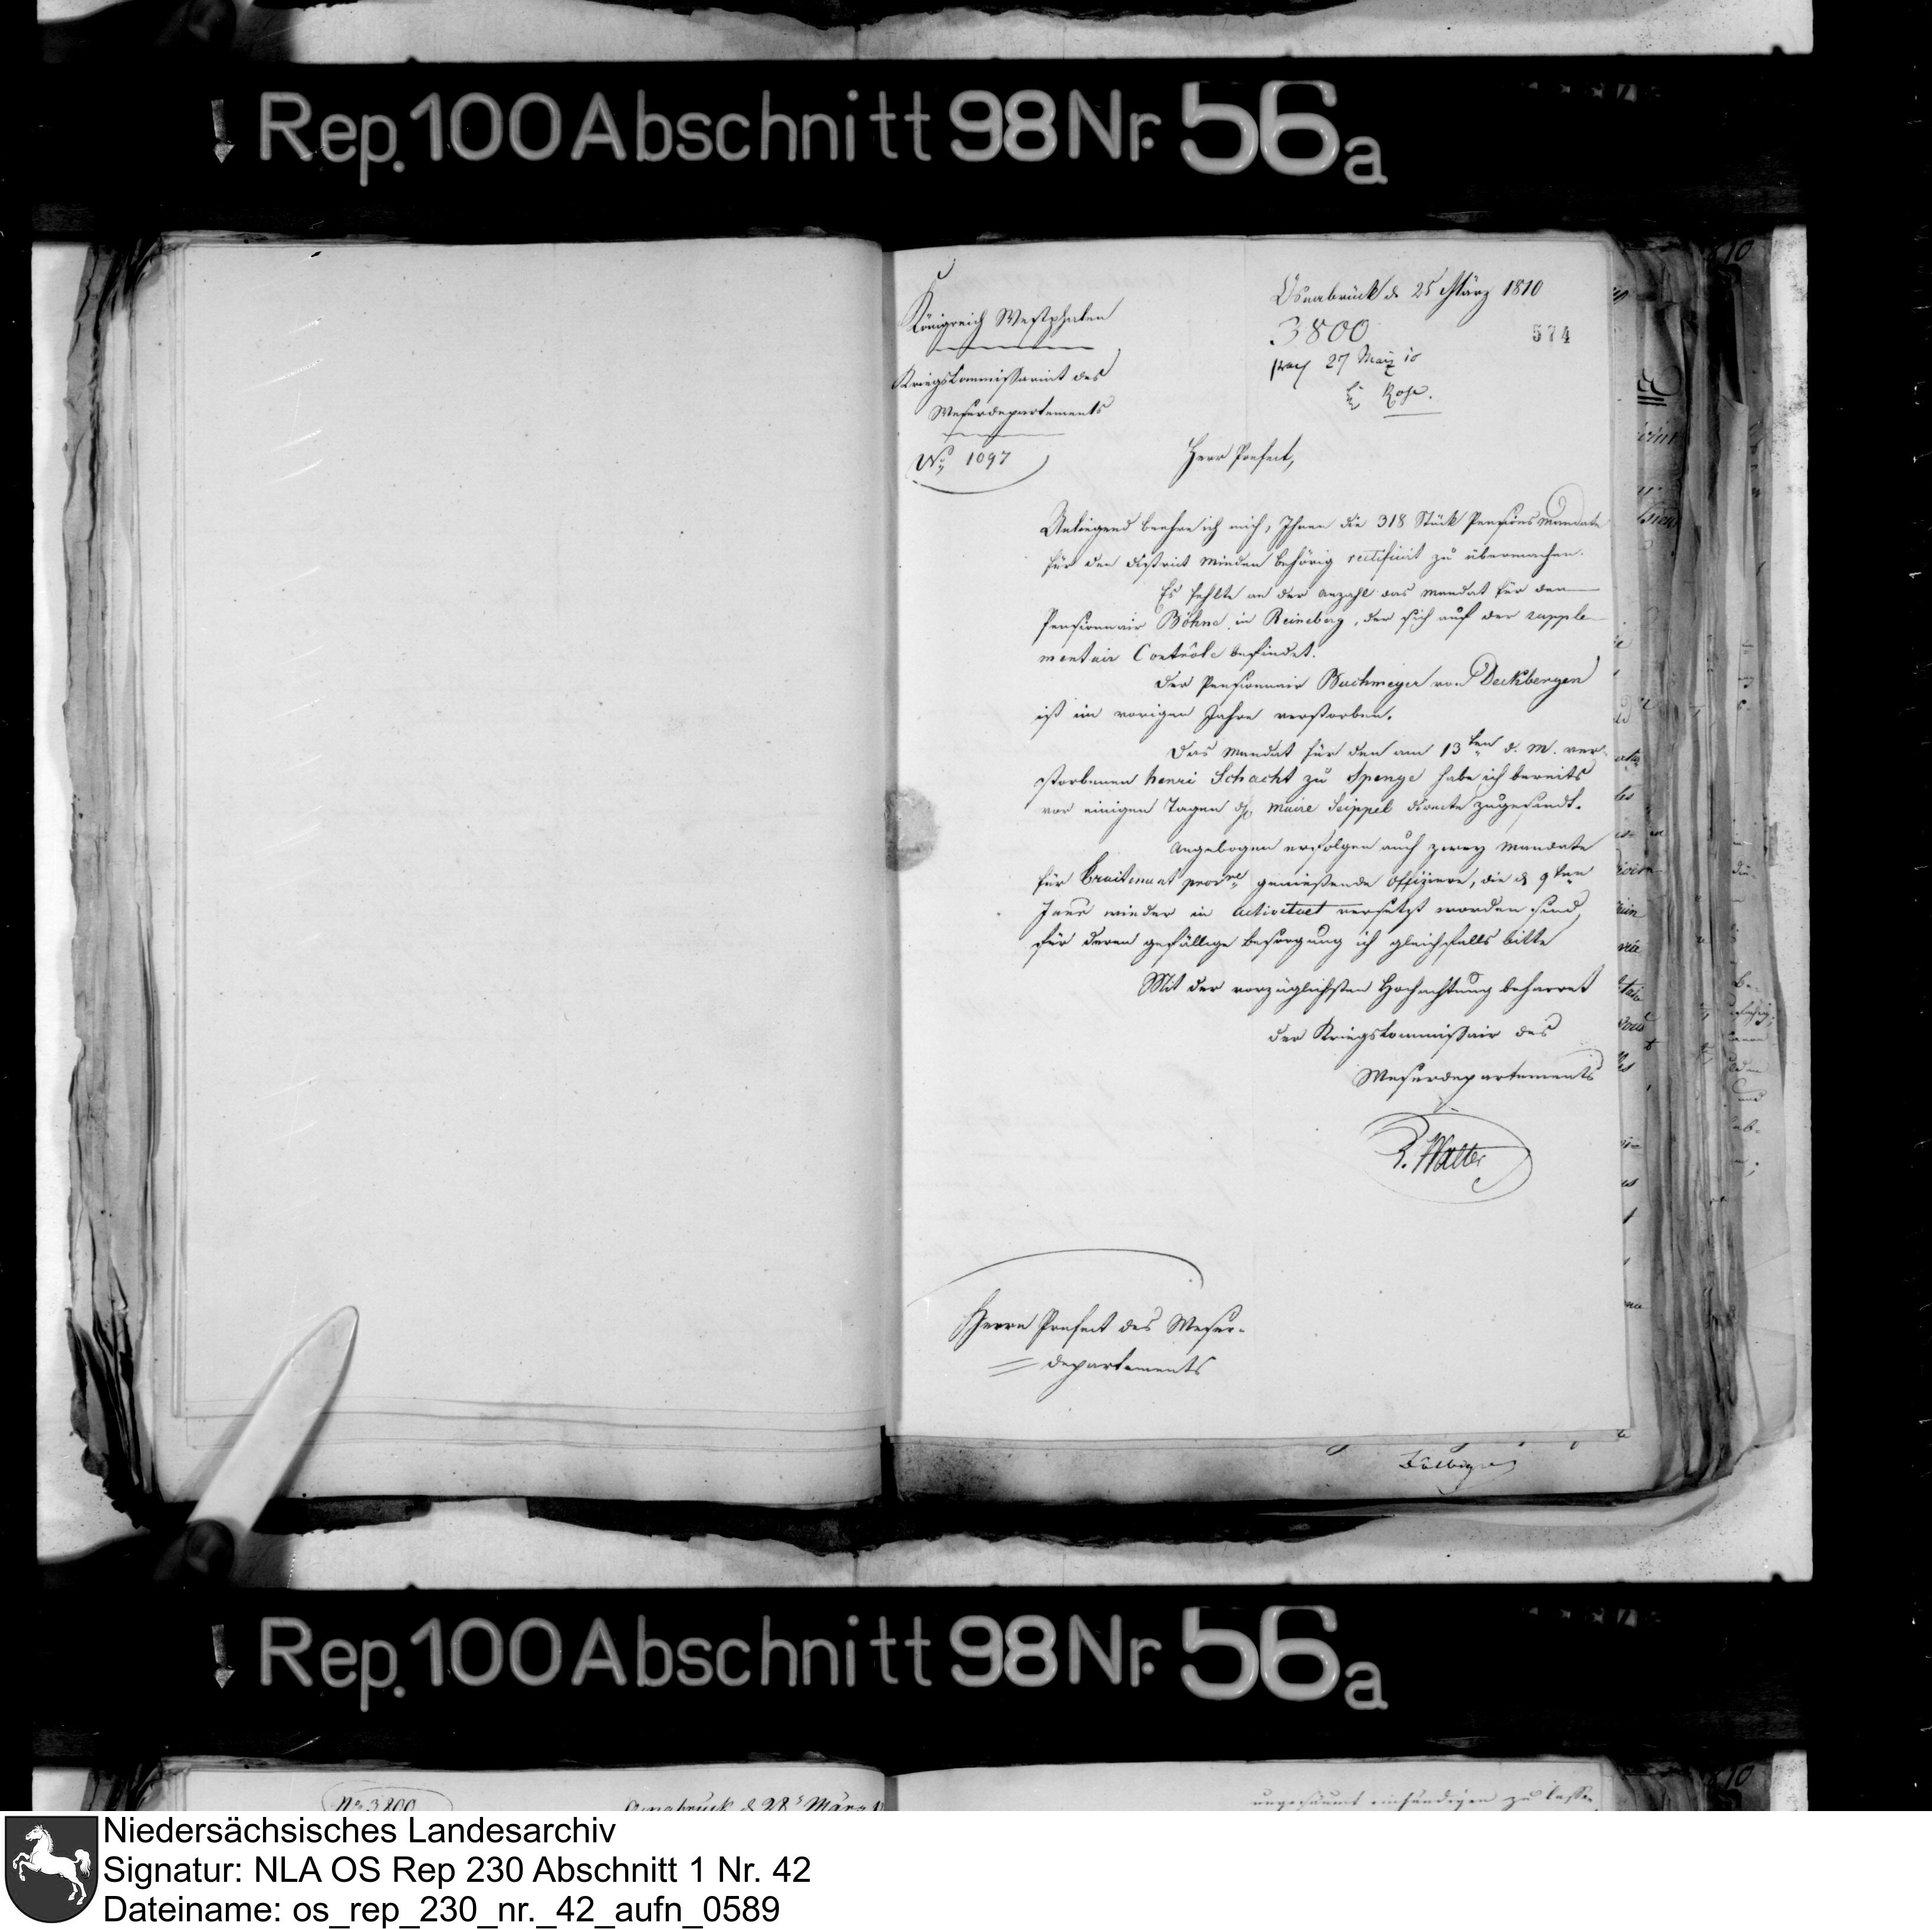 Rep. 100 Abschnitt 98 Nr. 56a
Königreich Westphalen
Kriegskommissariat des
Weserdepartements
No 1097
Osnabrück d. 25 März 1810
3800
574
27 März 10
Rose.
Herr Praefect,
Anliegend beehre ich mich, Ihnen die 318 Stück Pensions Mandate
für den District Minden behörig rectificirt zu übermachen.
Es fehlte an der Anzahl das Mandat für den
Pensionnair Böhne in Reineberg, der sich auf der supple
mentair Contrôle befindet.
Der Pensionnair Buchmeyer von Deckbergen
ist im vorigen Jahre verstorben.
Das Mandat für den am 13ten d. M. ver-
storbenen henri Schacht zu Spenge habe ich bereits
vor einigen Tagen Maire Seippel directe zugesandt.
Angebogen erfolgen auch zwey Mandate
für traitement genießende Offiziere, die d 9ten
Janr wieder in Activitaet versetzt worden sind,
für deren gefällige Besorgung ich gleichfalls bitte
Mit der vorzüglichsten Hochachtung beharret
der Kriegskommissair des
Weserdepartements
Walter
Herrn Praefect des Weser-
departements
Rep. 100 Abschnitt 98 Nr. 56a
No 3800
Osnabrück d 28 März
ungesäumt einhändigen zu lassen
Niedersächsisches Landesarchiv
Signatur: NLA OS Rep 230 Abschnitt 1 Nr. 42
Dateiname: os_rep_230_nr._42_aufn_0589